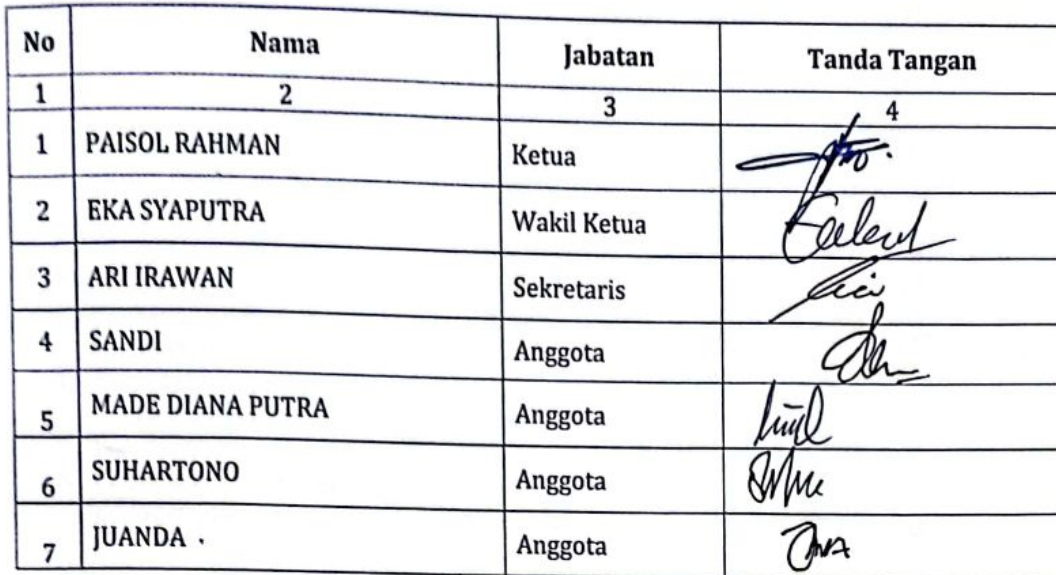 No Nama Jabatan Tanda Tangan
1 2 3 4
1 PAISOL RAHMAN Ketua
2 EKA SYAPUTRA Wakil Ketua
3 ARI IRAWAN Sekretaris
4 SANDI Anggota
5 MADE DIANA PUTRA Anggota
6 SUHARTONO Anggota
7 JUANDA . Anggota